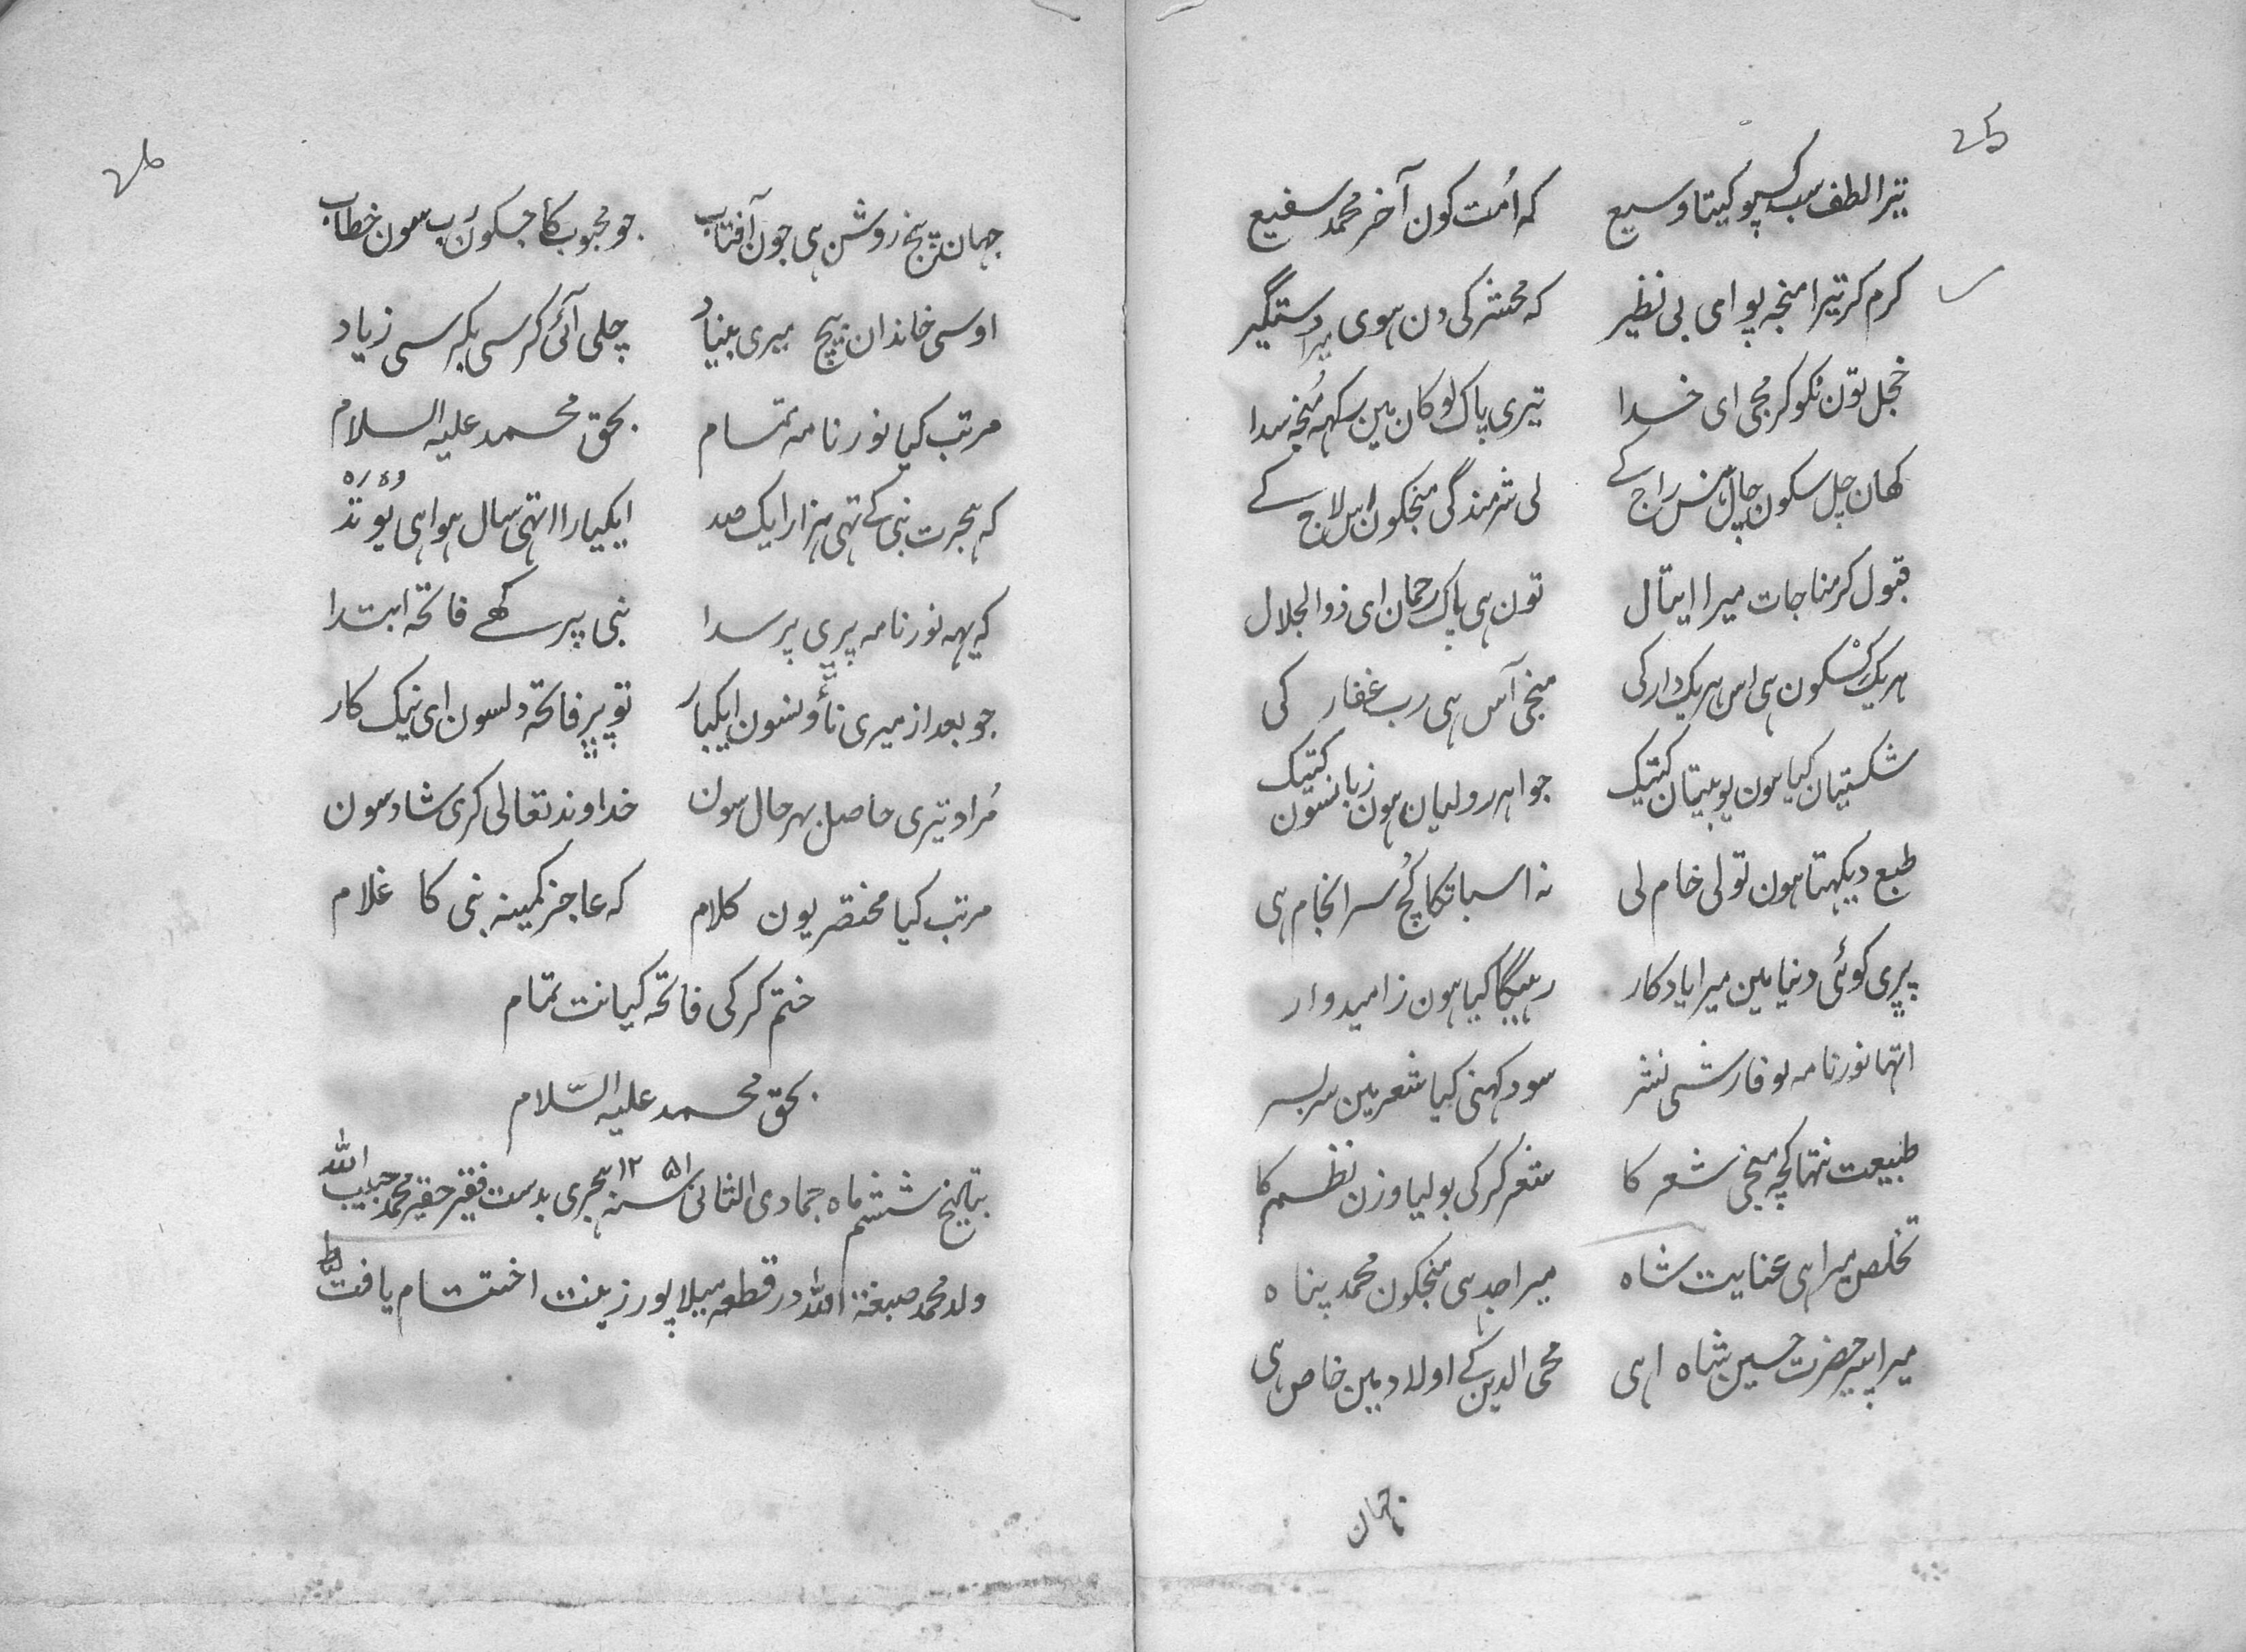 تیرا لطف سب کسپو کیتا وسیع کہ اُمت کون آخر محمد سفیع
کرم کر تیرا منجہ پو امی بی نظیر کہ محشر کی دن ہوی میرا دستگیر
خجل توُن نکو کر مجی ای خدا تیری پاک لوکان مین رکہہ مُنجہ سدا
کھان چل سکون چال ہنس راج کے لی شرمندگی منجکون اس لاج کے
قبول کر مناجات میرا ایتال تون ہی پاک رحمان ای ذوالجلال
ہریک کسکون ہی اس ہریک دار کی منجی آس ہی رب غفار کی
شکستیان کیا ہون یو بیتان کتیک جواہر رولیان ہون زبانسون کتیک
طبع دیکہتا ہون تو لی خام لی نہ اسباتکا کُچ سرانجام ہی
پری کوئی دنیا مین میرا یادکار رہیگا کیا ہون ز امیدوار
اتہا نورنامہ یو فارسی نثر سو دکہنی کیا شعر مین سربسر
طبیعت نتہا کچہ منجی شعر کا شعر کر کی بولیا وزن نظم کا
تخلص میرا ہی عنایت شاہ میرا جد ہی منجکون محمد پناہ
میرا پیر حضرت حسین شاہ اہی محی الدین کے اولاد مین خاص ہی
جہان
جہان تن بیچ روشن ہی جون آفتاب جو محبوب کا جسکون رب سون خطاب
اوسی خاندان بیچ میری بنیاد چلی آئی کرسی بکرسی زیاد
مرتب کیا نور نامہ تمام بحق محمد علیہ السلام
کہ ہجرت نبی کے تہی ہزار ایک صد ایکیارا اتہی سال ہوا ہی یو
کہ یہہ نورنامہ پری پر سدا نبی پر رکھے فاتحہ ابتدا
جو بعد از میری ناؤنسون ایکبار تو پر فاتحہ دلسون ای نیک کار
مُراد تیری حاصل بہر حال سون خداوند تعالی کری شاد سون
مرتب کیا مختصر یون کلام کہ عاجز کمینہ نبی کا غلام
ختم کر کی فاتحہ کیانت تمام
بحق محمد علیہ السّلام
بتاریخ ششم ماہ جمادی الثانی سنہ ۱۲۵۱ ہجری بدست فقیر حقیر محمد حبیب اللہ
ولد محمد صبغۃ اللہ در قطعہ میلاپور زینت اختتام یافت